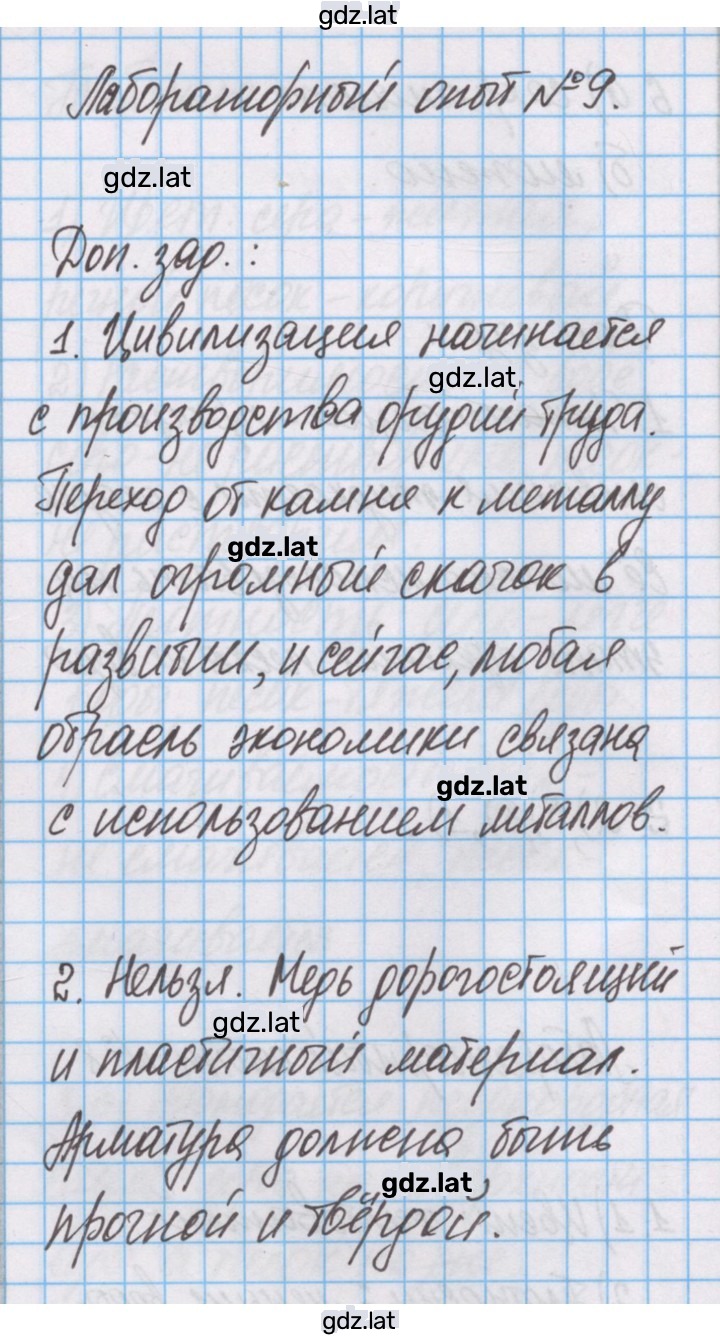 gdz.lat
Лабораторный опыт №9.
gdz.lat
Доп. зад. :
1. Цивилизация начинается
gdz.lat
с производства орудий труда.
Переход от камня к металлу
gdz.lat
дал огромный скачок в
развитии, и сейчас, любая
отрасль экономики связана
gdz.lat
с использованием металлов.
2. Нельзя. Медь дорогостоящий
gdz.lat
и пластичный материал.
Арматура должна быть
gdz.lat
прочной и твёрдой.
gdz.lat